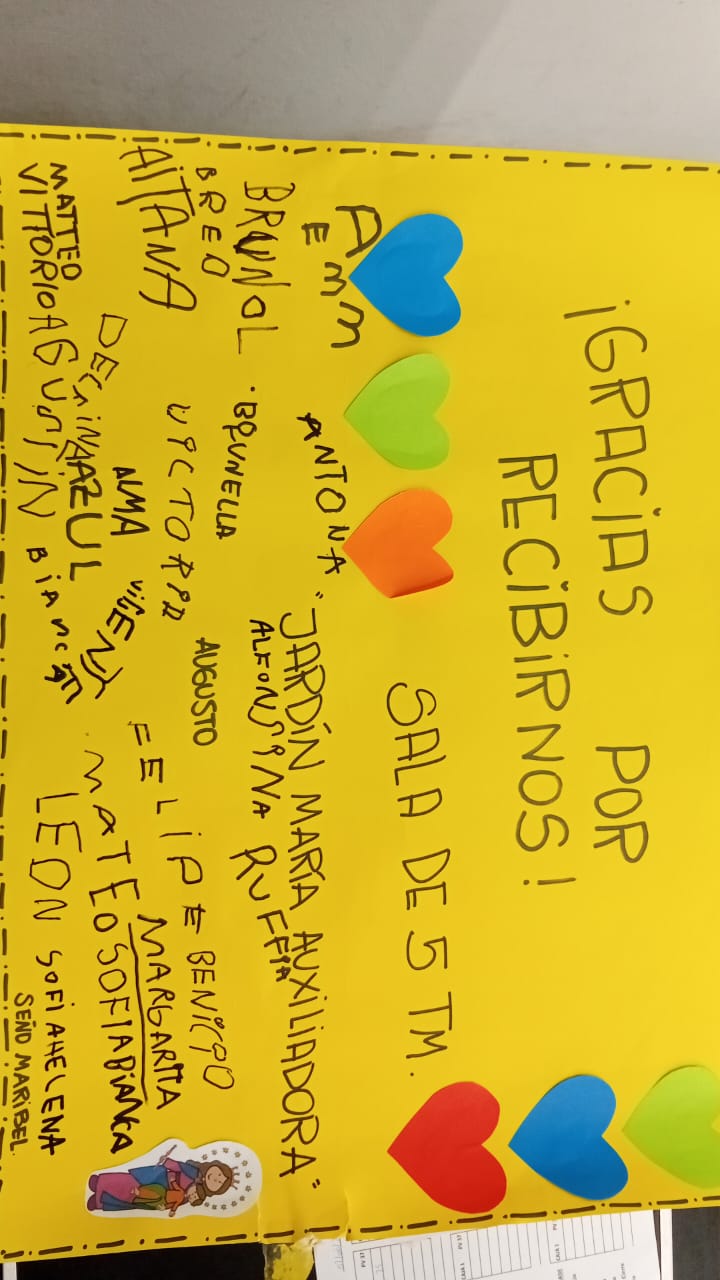 ¡GRACIAS POR
RECIBIRNOS!
SALA DE 5 TM.
"JARDÍN MARÍA AUXILIADORA"
A
EMM
ANTONA
ALFONSINA
RUFFIA
BRUNOL
BRUNELLA
BREO
AUGUSTO
BENICIO
AITANA
VICTORIA
FELIPE
MARGARITA
ALMA
MATEO
SOFIA
BIANCA
AZUL
MATTEO
VITTORIO
AGUSTIN
BIANCA
LEON
SOFIA
HELENA
SEÑO MARIBEL